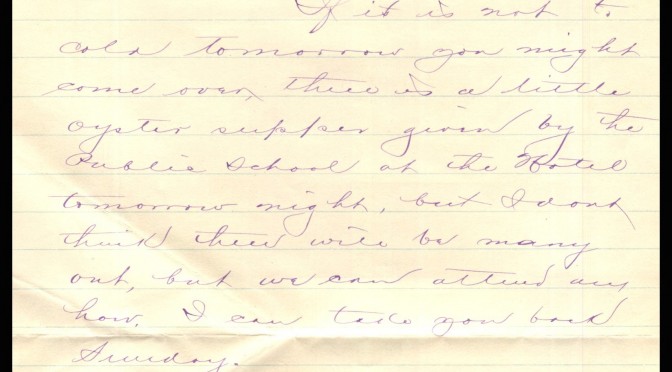 If it is not to
cold tomorrow you might
come over, there is a little
oyster supper given by the
Public School at the Hotel
tomorrow night, but I dont
think there will be many
out, but we can attend any
how. I can take you back
Sunday.